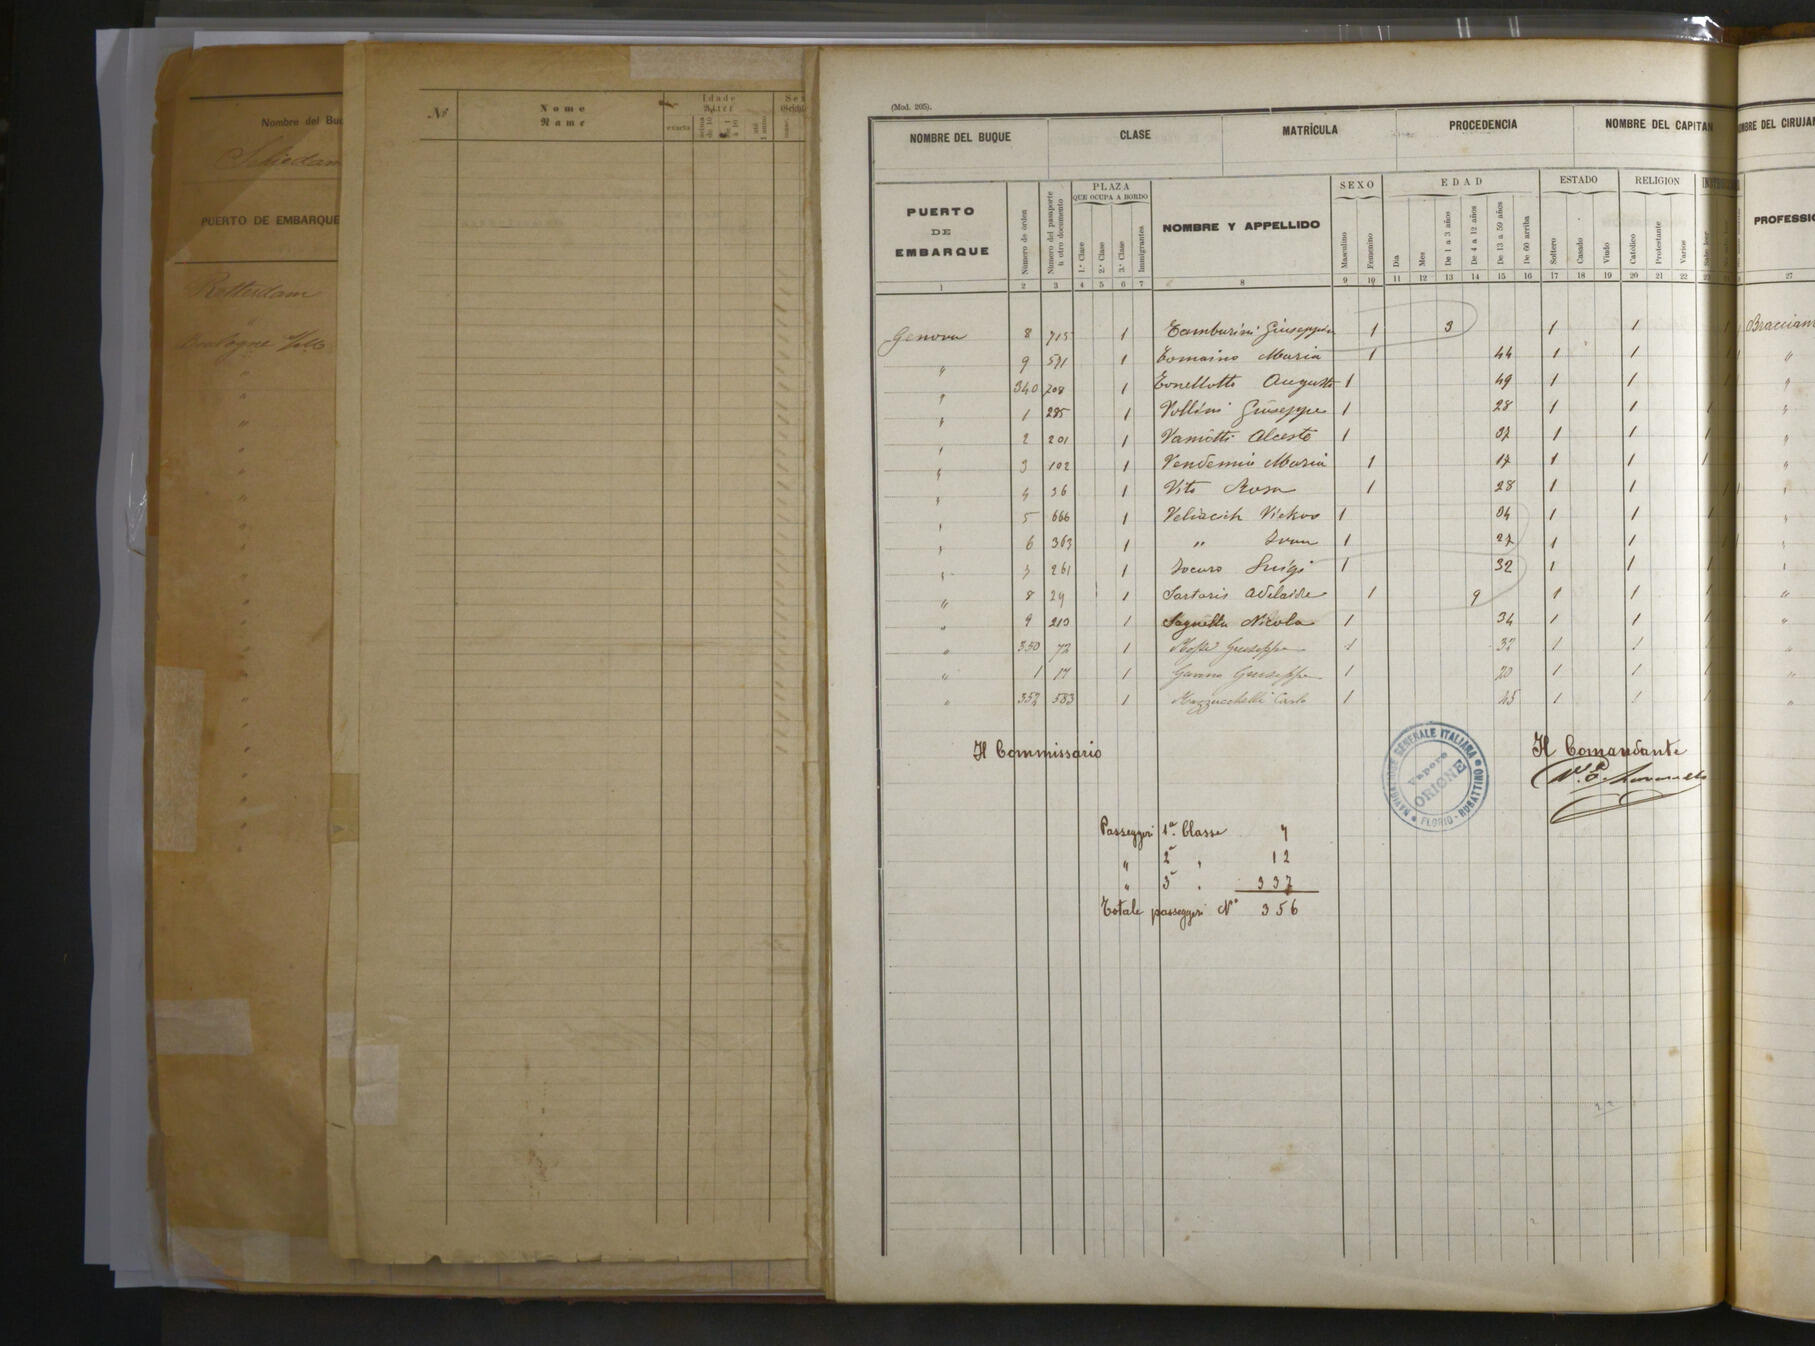 Nombre del Buq
Schiedam
PUERTO DE EMBARQUE
Rotterdam
Boulogne
Nº
Nome
Name
Idade
exacta
(Mod. 205).
NOMBRE DEL BUQUE
CLASE
MATRÍCULA
PROCEDENCIA
NOMBRE DEL CAPITAN
MBRE DEL CIRUJAN
PUERTO DE EMBARQUE
Número de órden
Número del pasaporte ú otro documento
PLAZA
QUE OCUPA A BORDO
1.ª Clase
2.ª Clase
3.ª Clase
Inmigrantes
NOMBRE Y APPELLIDO
SEXO
Masculino
Femenino
EDAD
Dia
Mes
De 1 a 3 años
De 4 a 12 años
De 13 a 59 años
De 60 arriba
ESTADO
Soltero
Casado
Viudo
RELIGION
Católico
Protestante
Varios
PROFESSIO
1 2 3 4 5 6 7 8 9 10 11 12 13 14 15 16 17 18 19 20 21 22 27
Genova 8 715 1 Tamburini Giuseppina 1 3 1 1
" 9 591 1 Tomaino Maria 1 44 1 1 "
" 340 208 1 Tonellotto Augusto 1 49 1 1 "
" 1 285 1 Vollini Giuseppe 1 28 1 1 "
" 2 201 1 Vaniotti Alceste 1 37 1 1 "
" 3 102 1 Vendemia Maria 1 17 1 1 "
" 4 36 1 Vito Rosa 1 28 1 1 "
" 5 666 1 Veliacih Vickos 1 34 1 1 "
" 6 363 1 " Ivan 1 27 1 1 "
" 7 261 1 Luigi 1 32 1 1 "
" 8 29 1 Sartoris Adelaide 1 9 1 1 "
" 9 210 1 Nicola 1 34 1 1 "
" 350 72 1 Giuseppe 1 32 1 1 "
" 1 17 1 Giuseppe 1 20 1 1 "
" 352 583 1 Mazzucchelli Carlo 1 45 1 1 "
Il Commissario
Il Comandante
NAVIGAZIONE GENERALE ITALIANA
Vapore
ORIONE
FLORIO-RUBATTINO
Passeggeri 1ª Classe 7
" 2ª " 12
" 3ª " 337
Totale passeggeri Nº 356